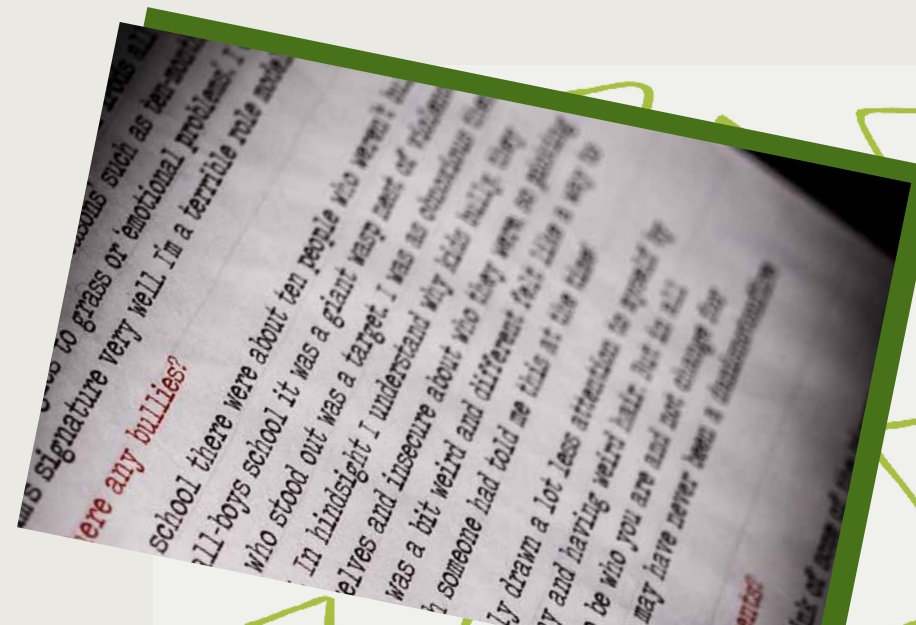 such as ten-
to grass or 'emotional problems'. I
signature very well. I'm a terrible role
ere any bullies?
school there were about ten people who weren't
ll-boys school it was a giant wasp nest of violent
who stood out was a target. I was as obnoxious
. In hindsight I understand why kids bully, they
elves and insecure about who they were so
was a bit weird and different felt like a way to
someone had told me this at the time!
ly drawn a lot less attention to myself by
y and having weird hair but in all
be who you are and not change for
may have never been a
ents?
ink of some of